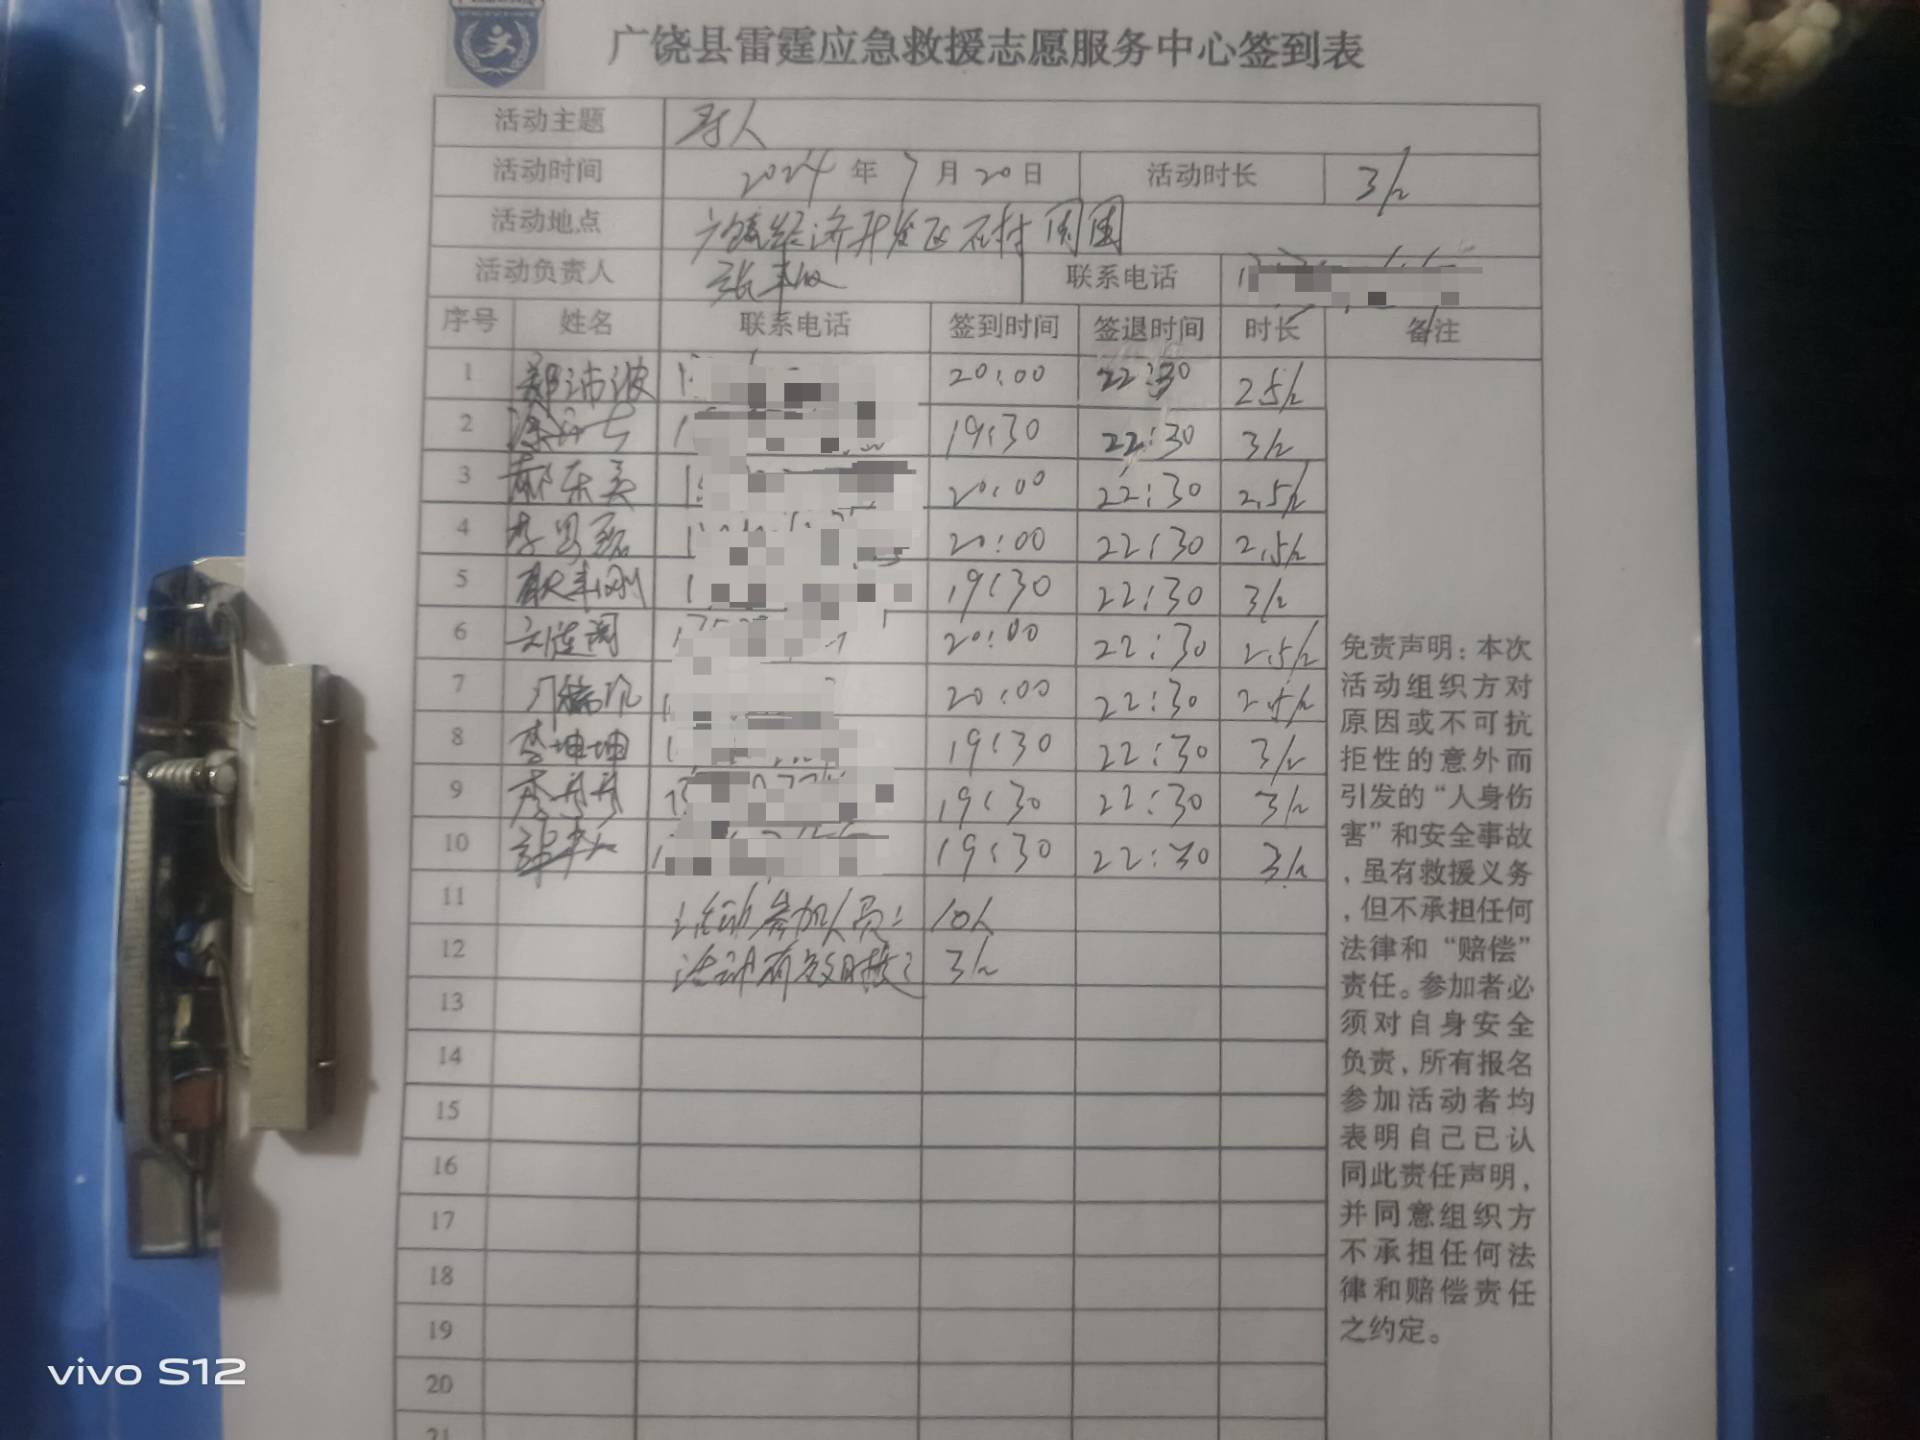 广饶县雷霆应急救援志愿服务中心签到表
活动主题 寻人
活动时间 2024年7月20日 活动时长 3h
活动地点 广饶经济开发区石村周围
活动负责人 联系电话
序号 姓名 联系电话 签到时间 签退时间 时长 备注
1 郑沛波 20:00 22:30 2.5h
2 19:30 22:30 3h
3 20:00 22:30 2.5h
4 20:00 22:30 2.5h
5 19:30 22:30 3h
6 20:00 22:30 2.5h
7 20:00 22:30 2.5h
8 李坤坤 19:30 22:30 3h
9 李丹丹 19:30 22:30 3h
10 19:30 22:30 3h
11 活动参加人员: 10人
12 活动有效时长: 3h
13
14
15
16
17
18
19
20
21
免责声明：本次
活动组织方对
原因或不可抗
拒性的意外而
引发的“人身伤
害”和安全事故
，虽有救援义务
，但不承担任何
法律和“赔偿”
责任。参加者必
须对自身安全
负责，所有报名
参加活动者均
表明自己已认
同此责任声明，
并同意组织方
不承担任何法
律和赔偿责任
之约定。
vivo S12